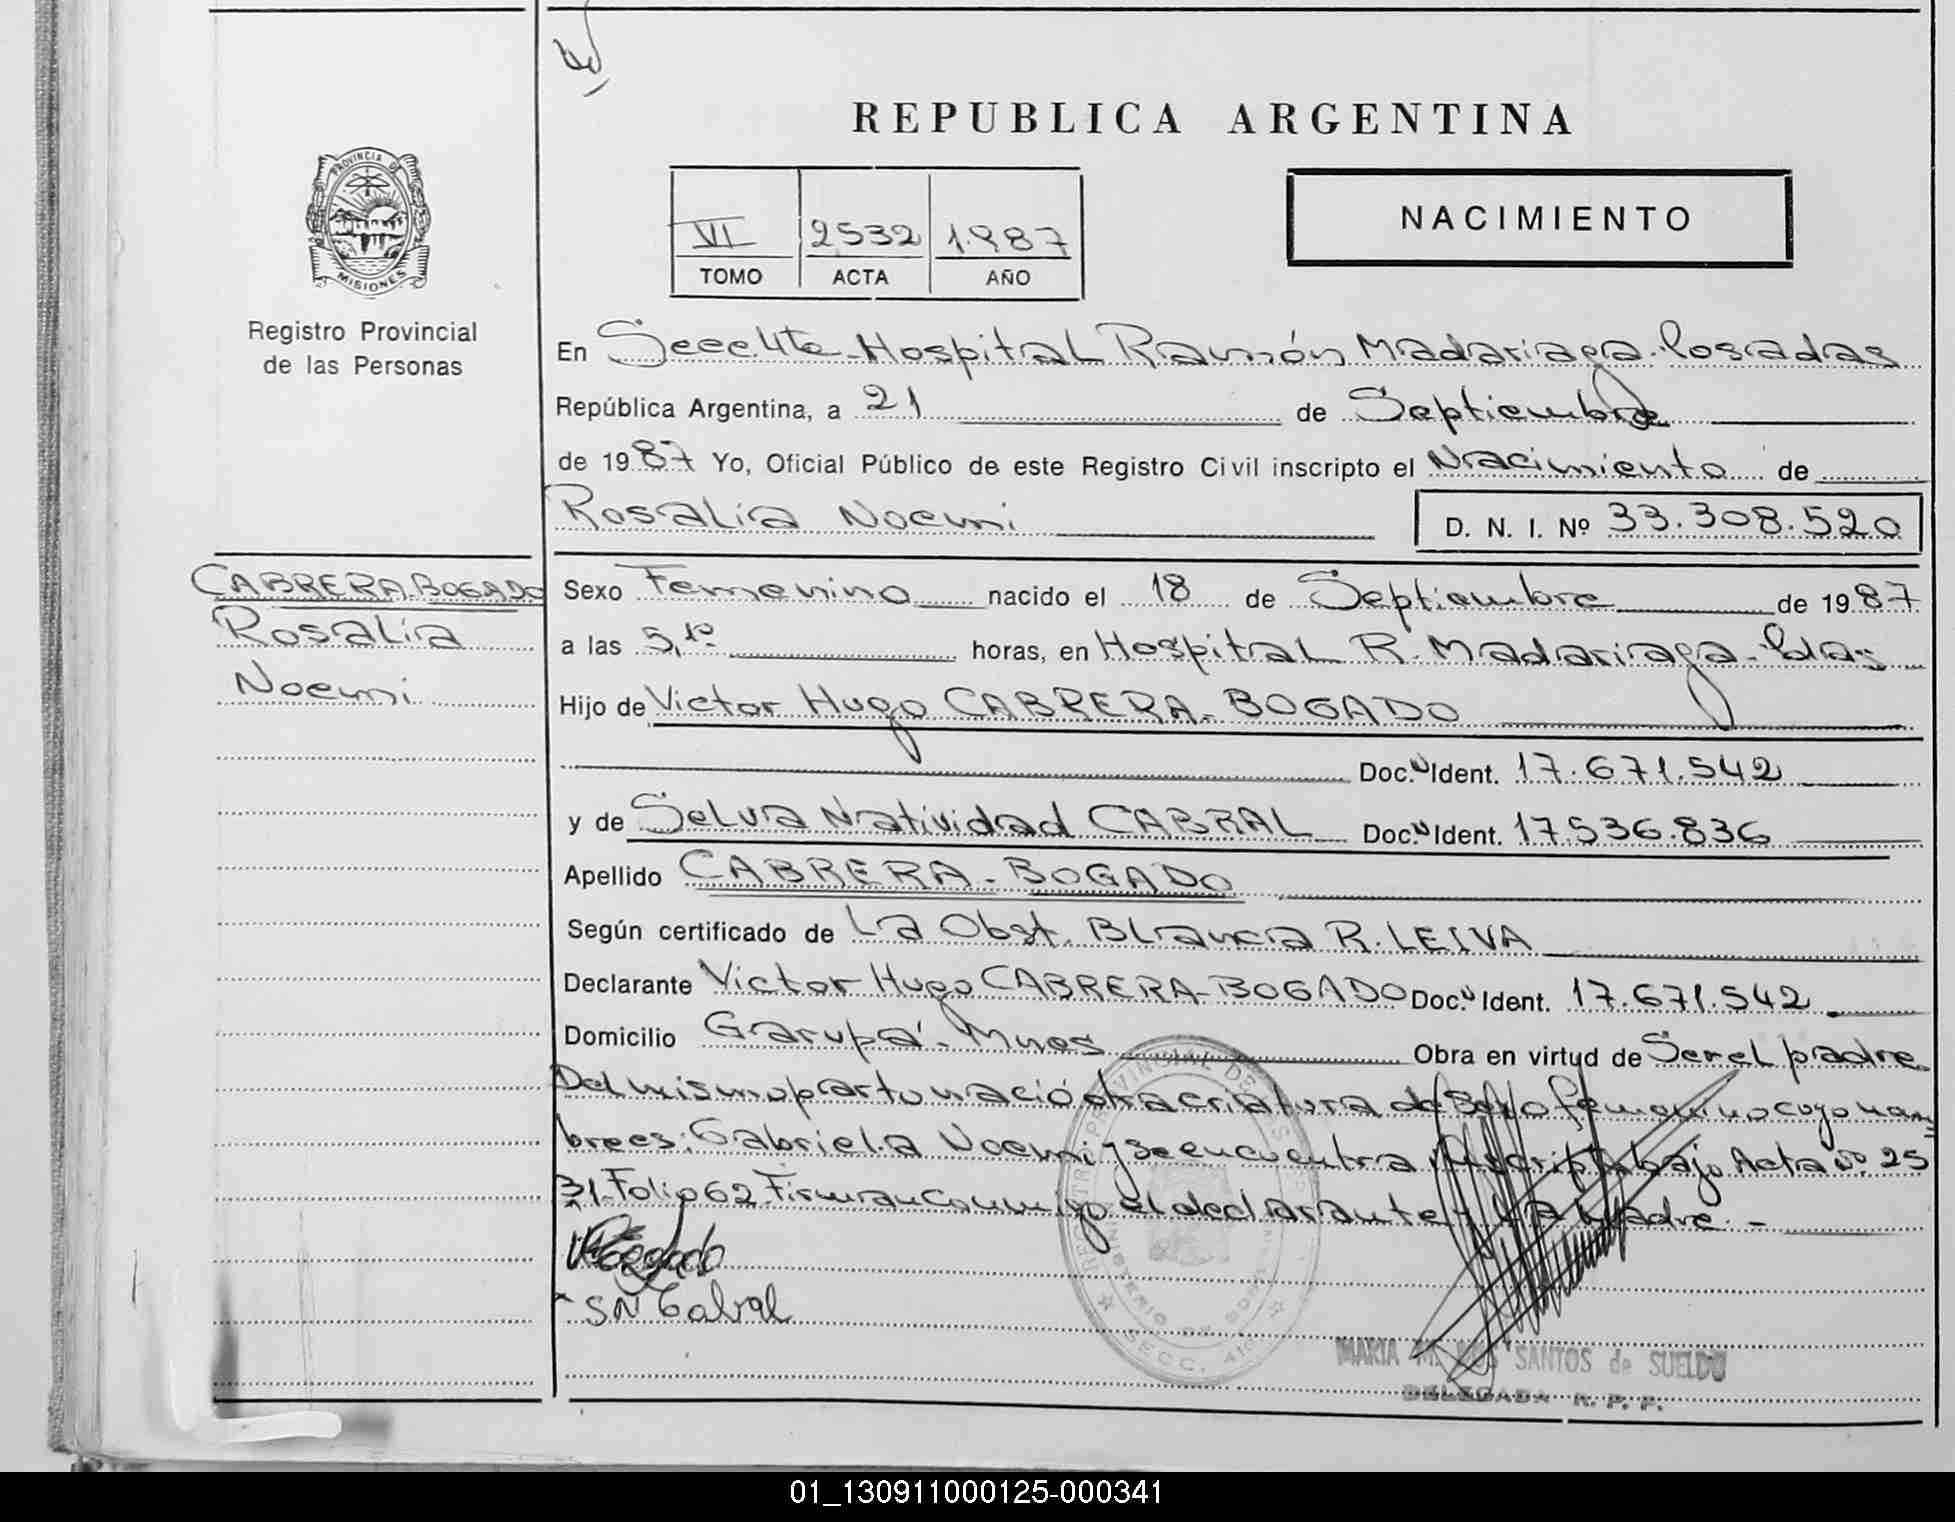 REPUBLICA ARGENTINA
PROVINCIA DE
MISIONES
Registro Provincial
de las Personas
VI 2532 1.987
TOMO ACTA AÑO
NACIMIENTO
En Secc 4ta Hospital Ramón Madariaga. Posadas
República Argentina, a 21 de Septiembre
de 1987 Yo, Oficial Público de este Registro Civil inscripto el Nacimiento de
Rosalía Noemi D. N. I. Nº 33.308.520
CABRERA-BOGADO
Rosalía
Noemi
Sexo Femenino nacido el 18 de Septiembre de 1987
a las 5,10 horas, en Hospital R. Madariaga - Pdas
Hijo de Victor Hugo CABRERA-BOGADO
Doc. Ident. 17.671.542
y de Selva Natividad CABRAL Doc. Ident. 17.536.836
Apellido CABRERA-BOGADO
Según certificado de La Obst. Blanca R. LEIVA
Declarante Victor Hugo CABRERA-BOGADO Doc. Ident. 17.671.542
Domicilio Garupá - Mnes Obra en virtud de Ser el padre
Del mismo parto nació otra criatura de sexo femenino cuyo nom
bre es: Gabriela Noemi y se encuentra inscripta bajo Acta Nº 25
31 Folio 62 Firman conmigo el declarante y la madre. -
Bogado
SNCabral
REGISTRO PROVINCIAL DE LAS PERSONAS
MINISTERIO DE GOBIERNO
SECC. 4ta
MARIA M. SANTOS de SUELDO
DELEGADA R. P. P.
01_130911000125-000341